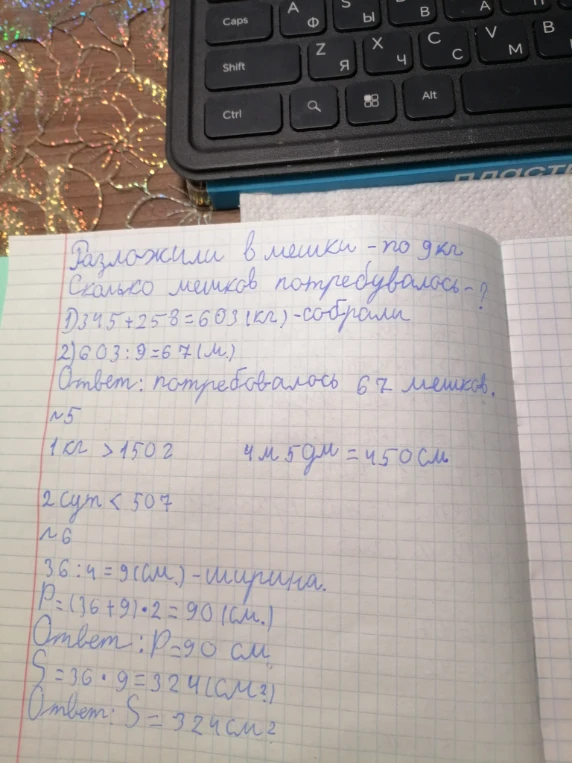 Caps
А Ф
S Ы
В
А
Shift
Z Я
X Ч
C С
V М
B
Ctrl
Alt
пласти
Разложили в мешки - по 9 кг
Сколько мешков потребувалось - ?
1) 345 + 258 = 603 (кг) - собрали
2) 603 : 9 = 67 (м.)
Ответ: потребовалось 67 мешков.
№5
1 кг > 150 г 4 м 5 дм = 450 см
2 сут < 507
№6
36 : 4 = 9 (см.) - ширина.
P = (36 + 9) · 2 = 90 (см.)
Ответ: P = 90 см
S = 36 · 9 = 324 (см²)
Ответ: S = 324 см²